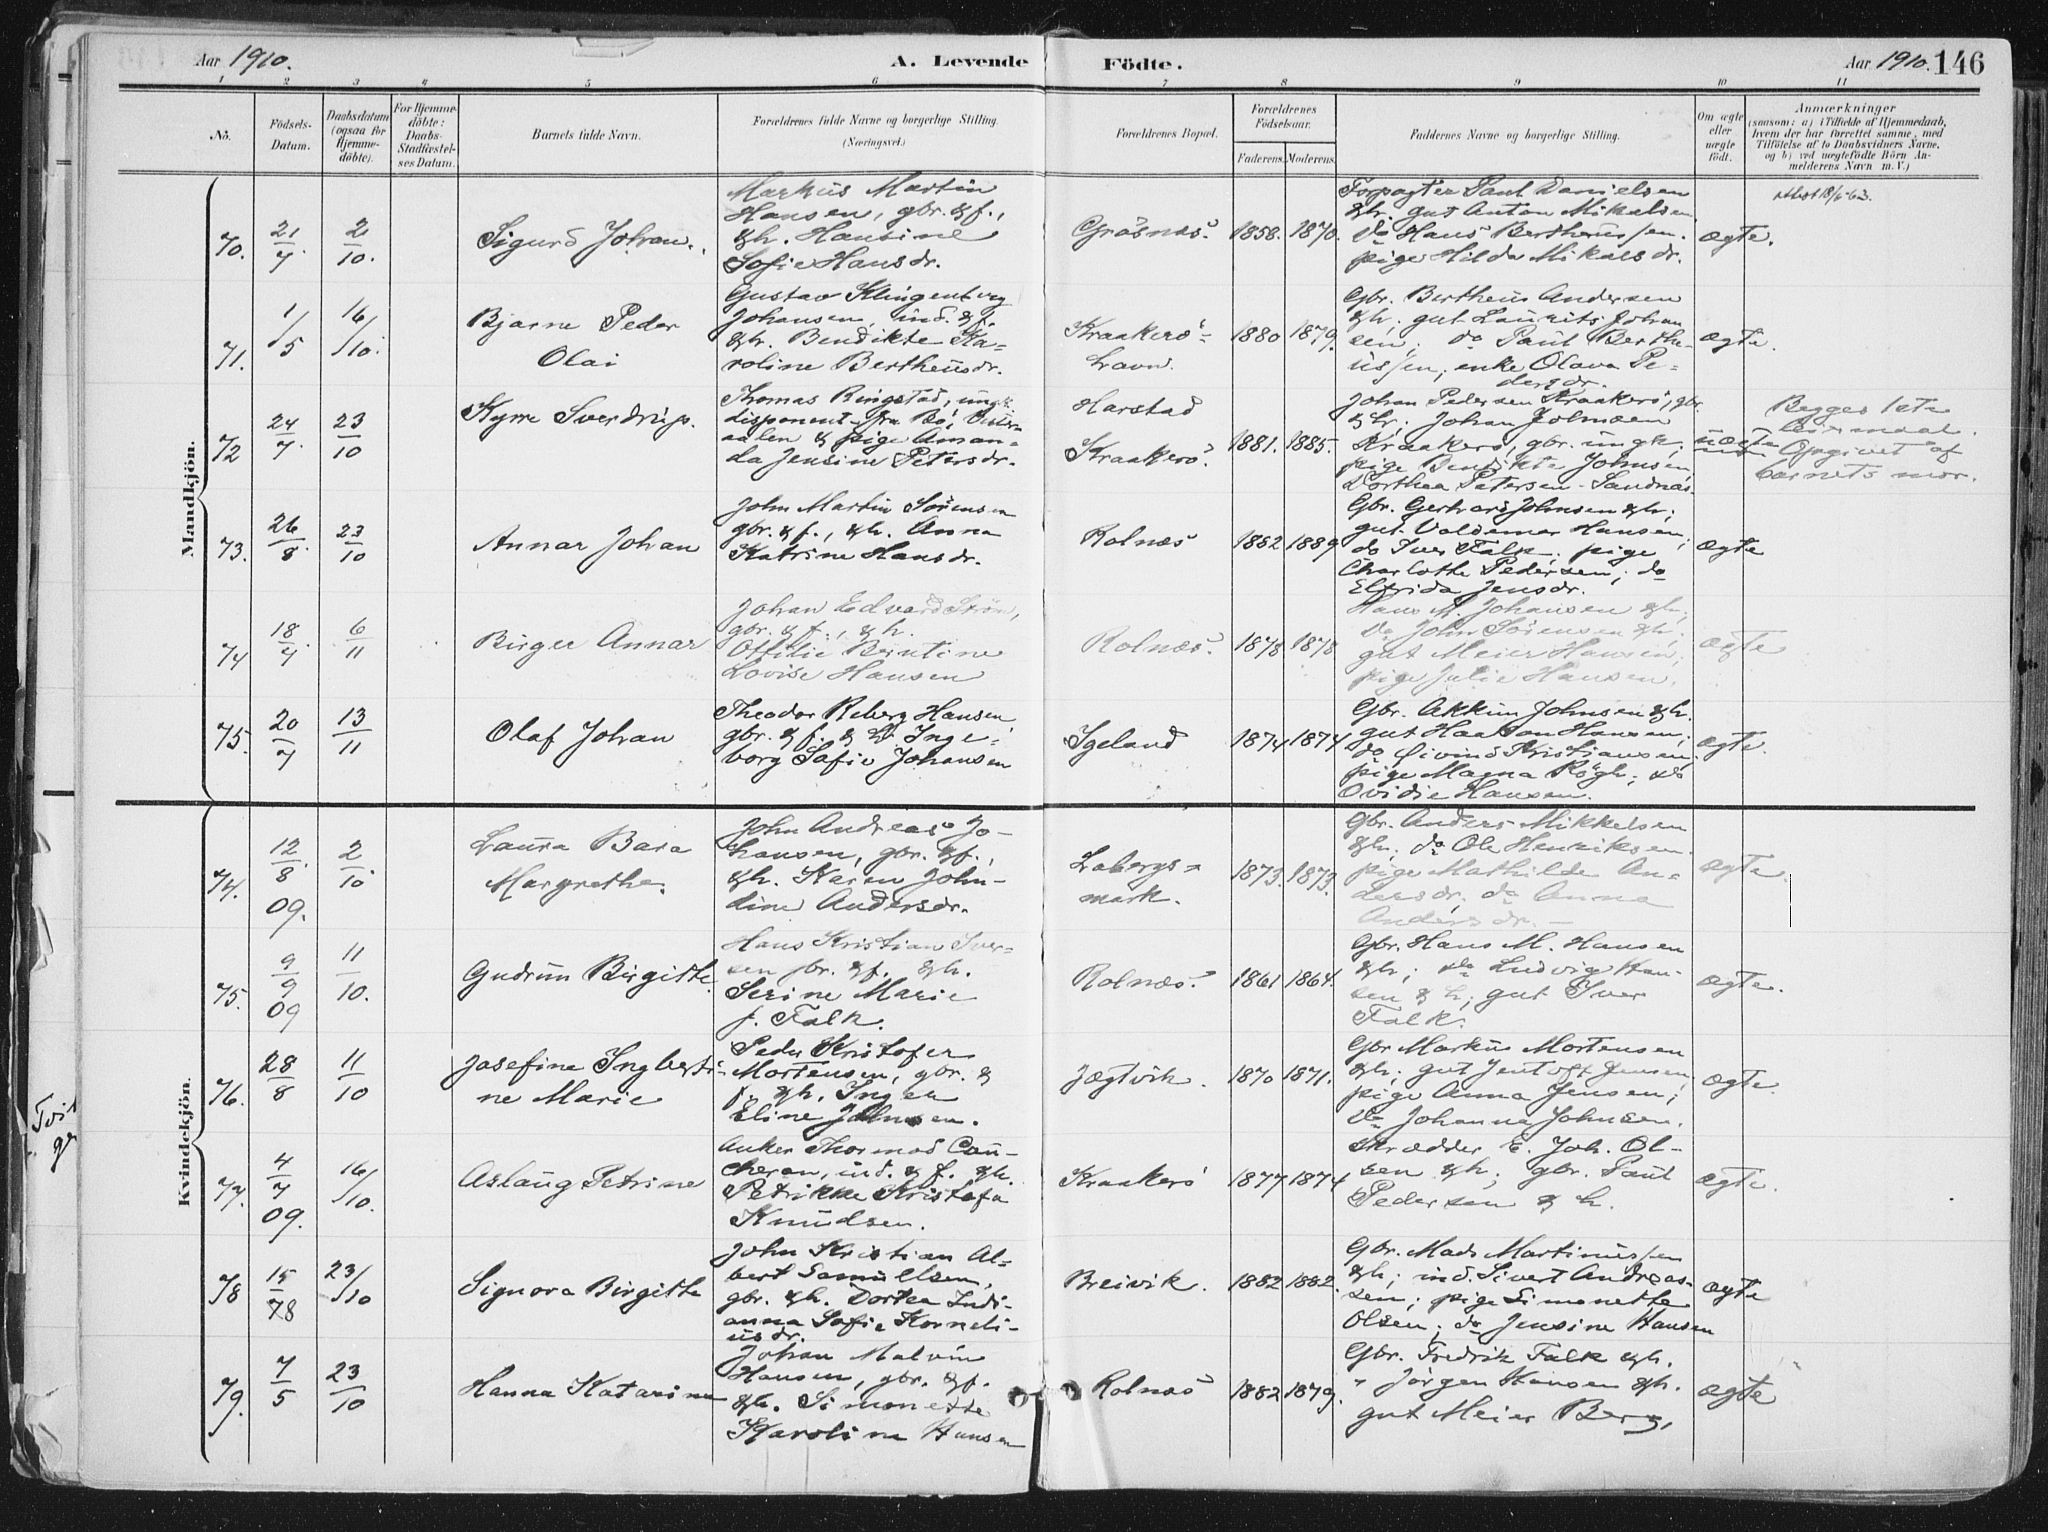 Aar 1910.
A. Levende Födte.
Aar 1910. 146
1 2 3 4 5 6 7 8 9 10 11
No.
Födsels-
Datum.
Daabsdatum
(ogsaa for
Hjemme-
döbte).
For Hjemme-
döbte:
Daabs-
Stadfæstel-
ses Datum.
Barnets fulde Navn.
Forældrenes fulde Navne og borgerlige Stilling.
(Næringsvei.)
Forældrenes Bopæl.
Forældrenes
Födselsaar.
Faderens. Moderens.
Faddernes Navne og borgerlige Stilling.
Om ægte
eller
uægte
födt.
Anmærkninger
(saasom: a) i Tilfælde af Hjemmedaab,
hvem der har forrettet samme, med
Tilföielse af to Daabsvidners Navne,
og b) ved uægtefödte Börn An-
melderens Navn m. V.)
Mandkjön.
70.
21/7.
2/10.
Sigurd Johan.
Markus Martin
Hansen, gbr. & f.,
& h. Hansine
Sofie Hansdr.
Grøsnæs.
1858. 1870.
Forpagter Paul Danielsen
& h. gut Anton Mikalsen
do Hans Bertheussen.
pige Hilda Mikalsdr.
ægte.
attest 18/6-63.
71.
1/5
16/10.
Bjarne Peder
Olai
Gustav Klingenberg
Johansen, ind. & f.
& h. Bendikte Ka-
roline Bertheusdr.
Kraakerö-
Lavn.
1880 1879.
Gbr. Bertheus Andersen
& h; gut Laurits Johan
sen; do Paul Berthe-
ussen; enke Olava Pe-
dersdr.
ægte.
72
24/7.
23/10
Kyrre Sverdrup.
Thomas Ringstad, ungk.
disponent fra Bö, Vester-
aalen & pige Aman-
da Jensine Petersdr.
Harstad
Kraakerö.
1881. 1885.
Johan Pedersen Kraakerö, gbr.
& h; Johan Johnsen
Kraakerö, gbr. ungk;
pige Bendikte Johnsen,
Dorthea Petersen-Sandnæs.
uægte
Begges 1ste
Leiermaal.
Opgivet af
barnets mor.
73.
26/8.
23/10
Annar Johan
John Martin Sörensen
gbr. & f., & h. Anna
Katrine Hansdr.
Rolnæs
1882 1889
Gbr. Gerhard Johnsen & h;
gut Valdemar Hansen;
do Iver Falk; pige
Charlothe Pedersen; do
Elfrida Jensdr.
ægte
74
18/7
6/11
Birger Annar
Johan Edvard Ström,
gbr. & f., & h.
Ottilie Berntine
Lovise Hansen
Rolnæs.
1878. 1878
Hans M. Johansen & h;
do John Sörensen & h;
gut Meier Hansen;
pige Julie Hansen.
ægte
75.
20/7
13/11
Olaf Johan
Theodor Reberg Hansen
gbr. & f. & h. Inge-
borg Sofie Johansen
Igeland
1874 1874
Gbr. Akkim Johnsen & h.
gut Haakon Hansen;
do Øivind Kristiansen,
pige Magna Kögh; do
Ovidie Hansen.
ægte.
Kvindekjön.
74.
12/8.
09.
2/10
Laura Bara
Margrethe.
John Andreas Jo-
hansen, gbr. & f.,
& h. Karen John-
dine Andersdr.
Labergs-
mark.
1873. 1873.
Gbr. Anders Mikkelsen
& h; do Ole Henriksen.
pige Mathilde An-
dersdr, do Anna
Andersdr. —
ægte
75.
9/9
09
11/10.
Gudrun Birgitte
Hans Kristian Iver-
sen gbr. & f. & h.
Serine Marie
f. Falk.
Rolnæs.
1861 1864.
Gbr. Hans M. Hansen
& h; do Ludvig Han-
sen & h; gut Iver
Falk.
ægte.
76.
28/8
11/10
Josefine Ingberti-
ne Marie
Peder Kristofer
Mortensen, gbr. &
f. & h. Inger
Eline Johnsen.
Jægtvik.
1870 1871.
Gbr Markus Mortensen
& h; gut Jentoft Jensen;
pige Anna Jensen;
do Johanna Johnsen.
ægte.
77.
4/7
09.
16/10.
Aslaug Petrine
Anker Thormod Cau-
cheron, ind. & f. & h.
Petrikke Kristofa
Knudsen.
Kraakerö
1877 1874
Skrædder E. Joh. Ol-
sen & h; gbr. Paul
Pedersen & h.
ægte.
78
15/78
23/10
Signora Birgitte
John Kristian Al-
bert Samuelsen,
gbr. & h. Dortea Indi-
anna Sofie Korneli-
usdr.
Breivik.
1882 1882.
Gbr. Mads Martinussen
& h; ind. Sivert Andreas-
sen; pige Simonette
Olsen; do Jensine Hansen
ægte
79.
7/5
23/10
Hanna Katarina
Johan Malvin
Hansen, gbr. & f.
& h. Simonette
Karoline Hansen
Rolnæs
1882 1879.
Gbr. Fredrik Falk & h.
" Jörgen Hansen & h.
gut Meier Berg,
ægte